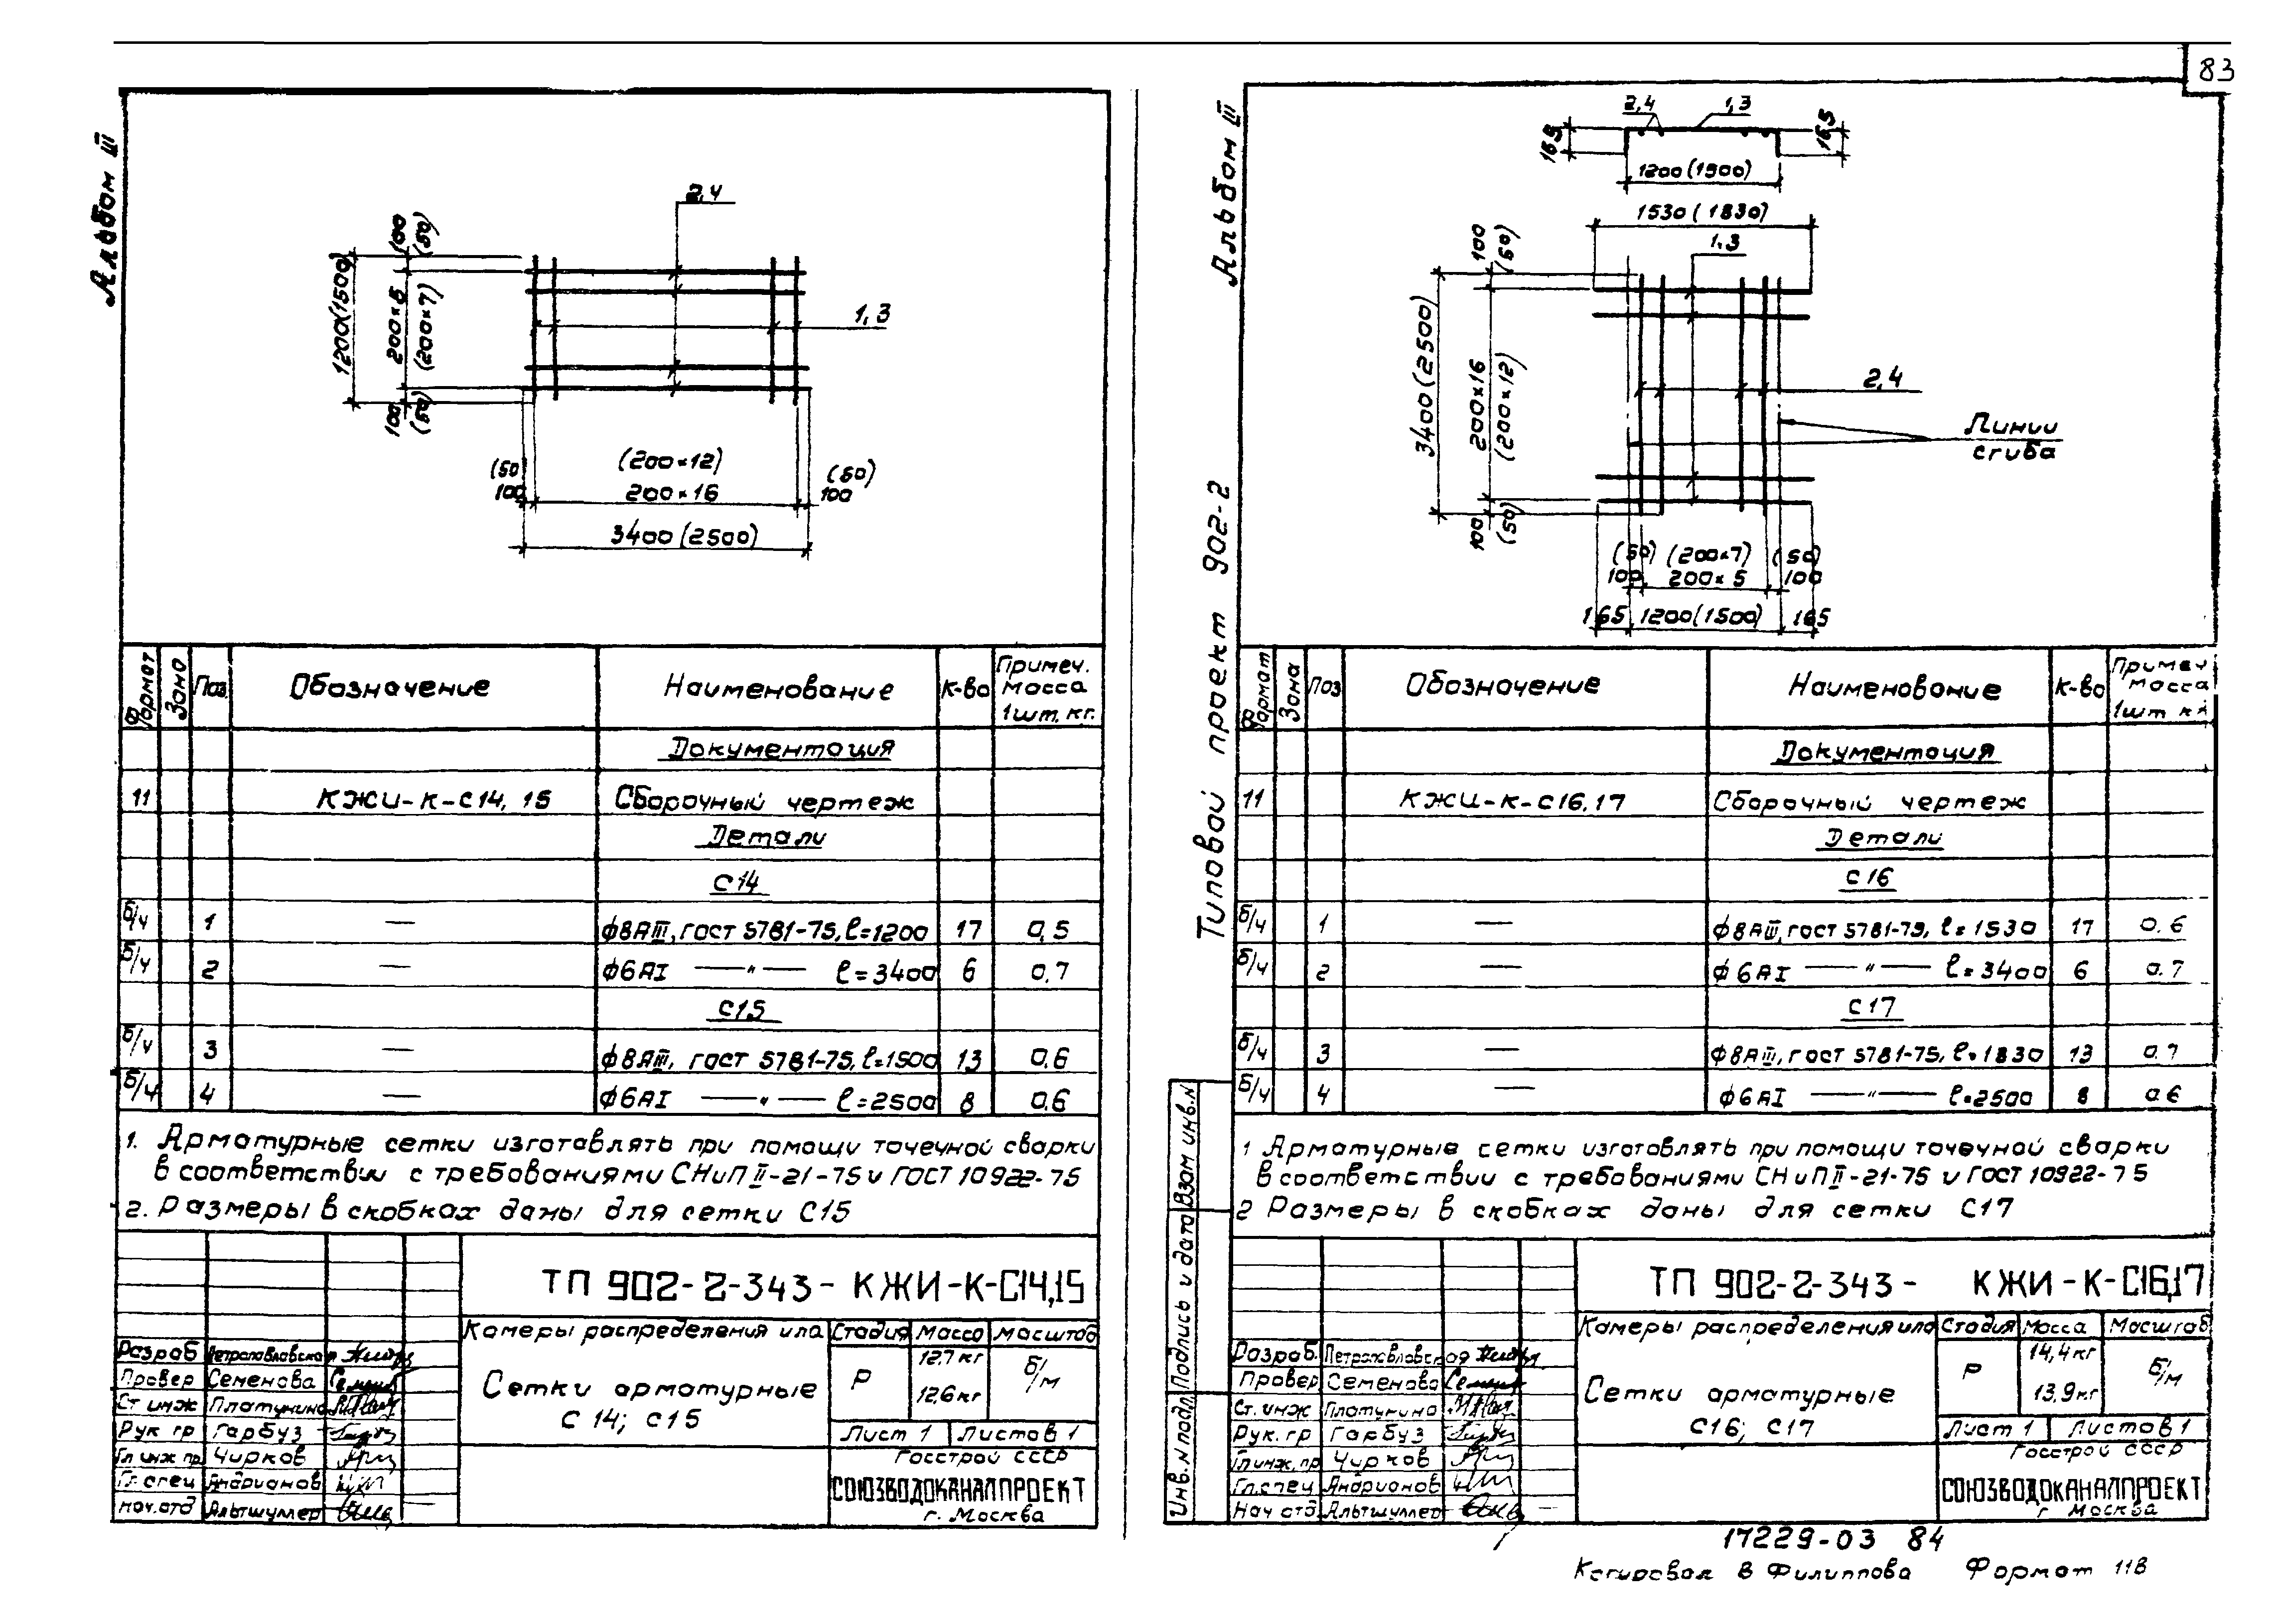 83
Альбом III
2,4
100
(50)
1200(1500)
200×5
(200×7)
1,3
100
(50)
(50)
(200×12)
(50)
100
200×16
100
3400(2500)
Формат
Зона
Поз.
Обозначение
Наименование
К-во
Примеч.
Масса
1шт. кг.
Документация
11
КЖИ-К-С14, 15
Сборочный чертеж
Детали
С14
Б/Ч 1 — ф8АIII, ГОСТ 5781-75, ℓ=1200 17 0,5
Б/Ч 2 — ф6АI —〃— ℓ=3400 6 0,7
С15
Б/Ч 3 — ф8АIII, ГОСТ 5781-75, ℓ=1500 13 0.6
Б/Ч 4 — ф6АI —〃— ℓ=2500 8 0.6
1. Арматурные сетки изготавлять при помощи точечной сварки
в соответствии с требованиями СНиП II-21-75 и ГОСТ 10922-75
2. Размеры в скобках даны для сетки С15
ТП 902-2-343- КЖИ-К-С14,15
Камеры распределения ила
Стадия
Масса
Масштаб
Сетки арматурные
С 14; С15
Р
12.7 кг
12.6кг
Б/м
Лист 1
Листов 1
Госстрой СССР
СОЮЗВОДОКАНАЛПРОЕКТ
г. Москва
Разраб Петропавловская
Провер Семенова
Ст инж Платунина
Рук гр Гарбуз
Гл инж пр Чирков
Гл.спец Андрианов
Нач.отд Альтшуллер
Альбом III
Типовой проект 902-2
2,4
1,3
165
165
1200(1500)
1530(1830)
1,3
100
(50)
3400(2500)
200×16
(200×12)
2,4
Линии
сгиба
100
(50)
(50) (200×7) (50)
100 200×5 100
165 1200(1500) 165
Формат
Зона
Поз
Обозначение
Наименование
К-во
Примеч
Масса
1шт кг
Документация
11
КЖИ-К-С16,17
Сборочный чертеж
Детали
С16
Б/Ч 1 — ф8АIII, ГОСТ 5781-75, ℓ=1530 17 0.6
Б/Ч 2 — ф6АI —〃— ℓ=3400 6 0.7
С17
Б/Ч 3 — ф8АIII, ГОСТ 5781-75, ℓ=1830 13 0.7
Б/Ч 4 — ф6АI —〃— ℓ=2500 8 0.6
1 Арматурные сетки изготовлять при помощи точечной сварки
в соответствии с требованиями СНиП II-21-75 и ГОСТ 10922-75
2 Размеры в скобках даны для сетки С17
Взам инв.N
Подпись и дата
Инв.N подл
ТП 902-2-343- КЖИ-К-С16,17
Камеры распределения ила
Стадия
Масса
Масштаб
Сетки арматурные
С16; С17
Р
14,4кг
13,9кг
Б/м
Лист 1
Листов 1
Госстрой СССР
СОЮЗВОДОКАНАЛПРОЕКТ
г. Москва
Разраб. Петропавловская
Провер Семенова
Ст.инж Платунина
Рук. гр Гарбуз
Гл инж.пр Чирков
Гл.спец Андрианов
Нач отд. Альтшуллер
17229-03 84
Копировал В Филиппова Формат 11В